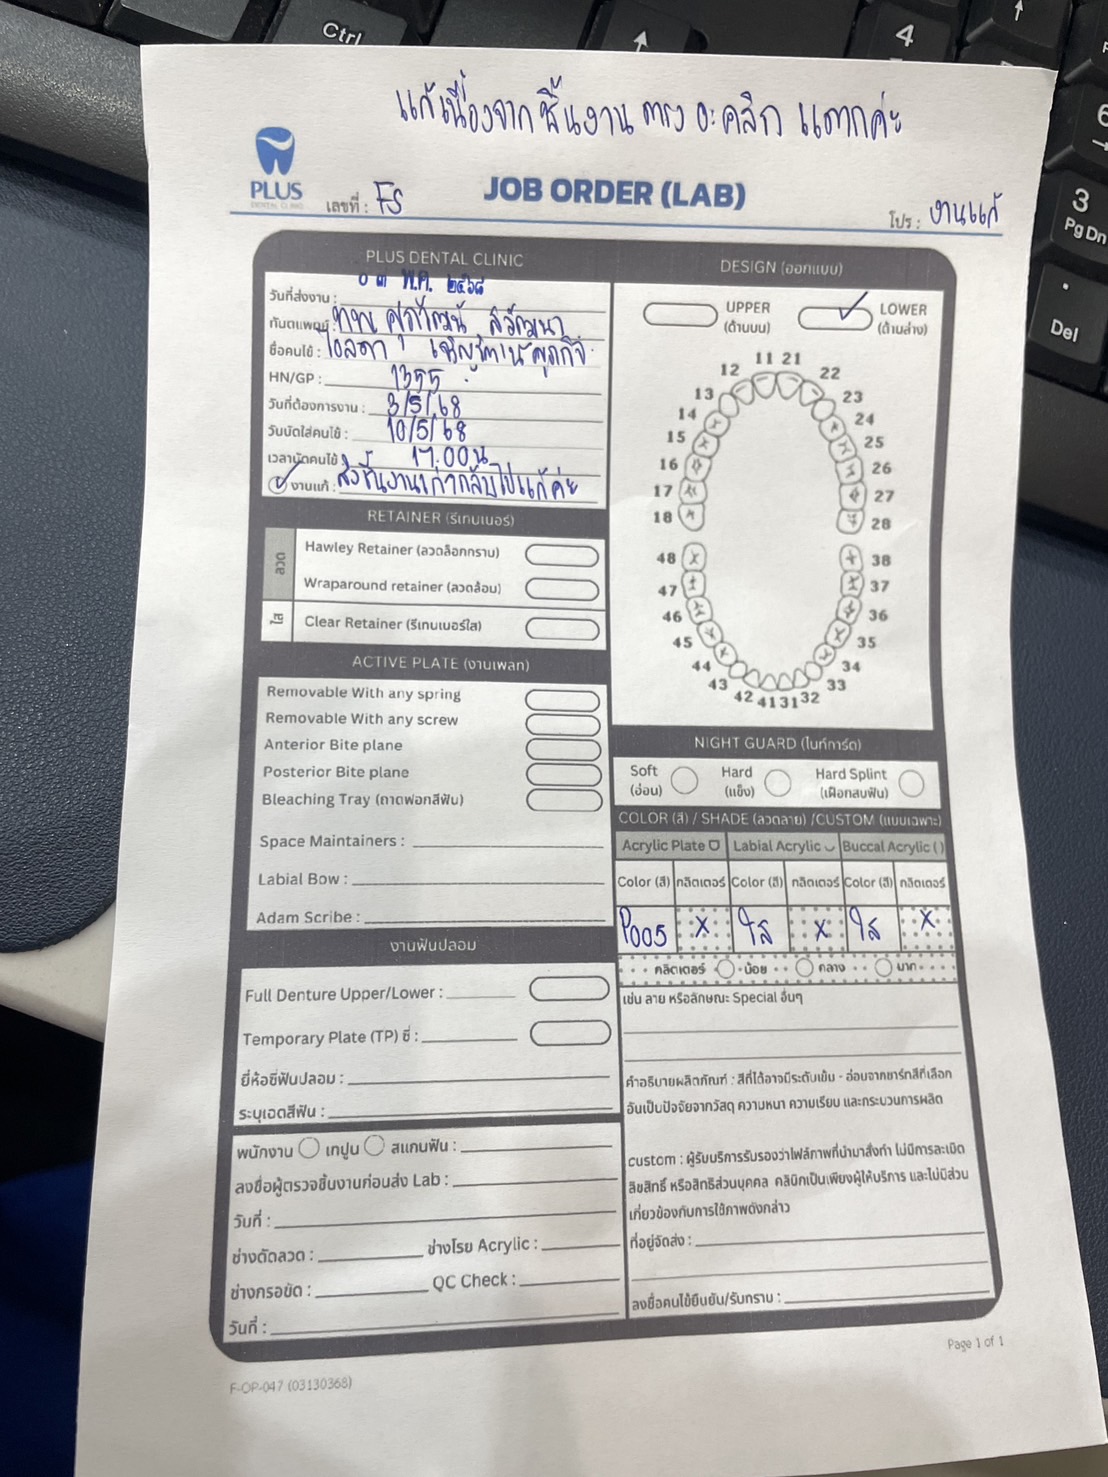 แก้เนื่องจาก ชิ้นงาน ตรง อะคลิก แตกค่ะ
PLUS
DENTAL CLINIC
เลขที่ : FS
JOB ORDER (LAB)
โปร : งานแก้
PLUS DENTAL CLINIC
วันที่ส่งงาน : 0 ๓ พ.ค. ๒๕๖๘
ทันตแพทย์ : ทพ
ชื่อคนไข้ :
HN/GP : 1355
วันที่ต้องการงาน : 3/5/68
วันนัดใส่คนไข้ : 10/5/68
เวลานัดคนไข้ : 17.00 น
งานแก้ : ส่งชิ้นงานเก่ากลับไปแก้ค่ะ
RETAINER (รีเทนเนอร์)
ลวด
Hawley Retainer (ลวดล็อกกราม)
Wraparound retainer (ลวดล้อม)
ใส
Clear Retainer (รีเทนเนอร์ใส)
ACTIVE PLATE (งานเพลท)
Removable With any spring
Removable With any screw
Anterior Bite plane
Posterior Bite plane
Bleaching Tray (ถาดฟอกสีฟัน)
Space Maintainers :
Labial Bow :
Adam Scribe :
งานฟันปลอม
Full Denture Upper/Lower :
Temporary Plate (TP) ซี่ :
ยี่ห้อซี่ฟันปลอม :
ระบุเฉดสีฟัน :
พนักงาน เทปูน สแกนฟัน :
ลงชื่อผู้ตรวจชิ้นงานก่อนส่ง Lab :
วันที่ :
ช่างดัดลวด : ช่างโรย Acrylic :
ช่างกรอขัด : QC Check :
วันที่ :
DESIGN (ออกแบบ)
UPPER (ด้านบน)
LOWER (ด้านล่าง)
11 21
12 22
13 23
14 24
15 25
16 26
17 27
18 28
48 38
47 37
46 36
45 35
44 34
43 33
42 41 31 32
NIGHT GUARD (ไนท์การ์ด)
Soft (อ่อน)
Hard (แข็ง)
Hard Splint (เฝือกสบฟัน)
COLOR (สี) / SHADE (ลวดลาย) /CUSTOM (แบบเฉพาะ)
Acrylic Plate Labial Acrylic Buccal Acrylic ( )
Color (สี) กลิตเตอร์ Color (สี) กลิตเตอร์ Color (สี) กลิตเตอร์
P005 X ใส X ใส X
กลิตเตอร์ น้อย กลาง มาก
เช่น ลาย หรือลักษณะ Special อื่นๆ
คำอธิบายผลิตภัณฑ์ : สีที่ได้อาจมีระดับเข้ม - อ่อนจากชาร์ทสีที่เลือก
อันเป็นปัจจัยจากวัสดุ ความหนา ความเรียบ และกระบวนการผลิต
custom : ผู้รับบริการรับรองว่าไฟล์ภาพที่นำมาสั่งทำ ไม่มีการละเมิด
ลิขสิทธิ์ หรือสิทธิส่วนบุคคล คลินิกเป็นเพียงผู้ให้บริการ และไม่มีส่วน
เกี่ยวข้องกับการใช้ภาพดังกล่าว
ที่อยู่จัดส่ง :
ลงชื่อคนไข้ยืนยัน/รับทราบ :
Page 1 of 1
F-OP-047 (03130368)
Ctrl
4
6
3
Pg Dn
.
Del